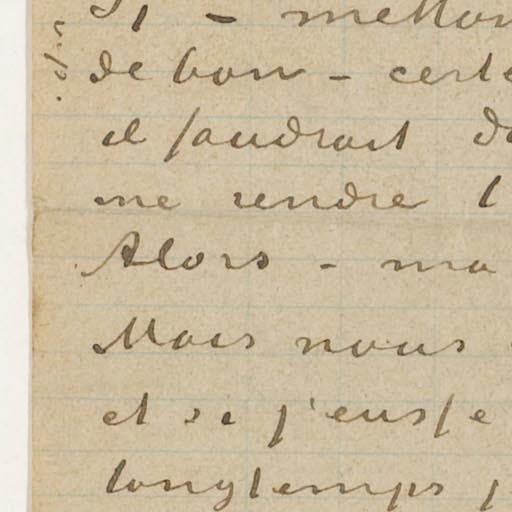 Si - mettons
de bon - certe
il faudrait da
me rendre l
Alors - ma
Mais nous
et si j'eusse
longtemps p